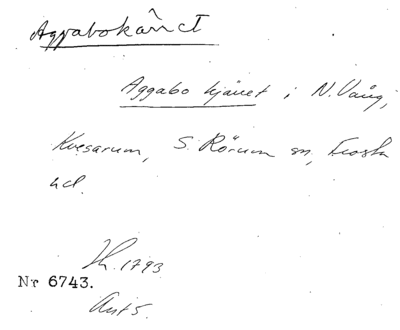 Aggabokänet
Aggabo kjänet i N. Vång,
Kvesarum, S. Rörum sn, Frosta
hd.
Sk. 1793
Nr 6743.
Akt 5.